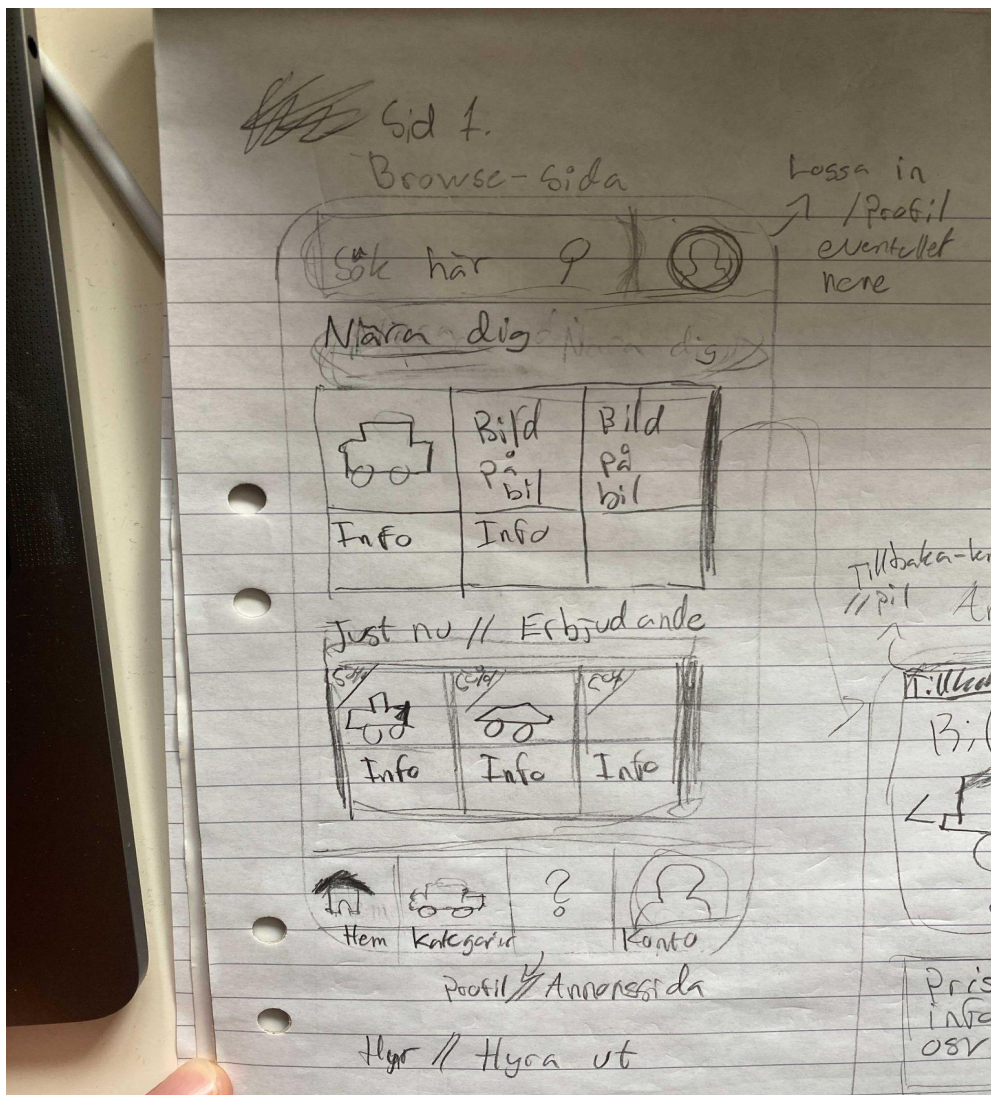 Sid 1.
Browse-sida
Lossa in
/Profil
eventullet
nere
Sök här
Nära dig
Nära dig
Bild
på
bil
Bild
på
bil
Info
Info
Just nu // Erbjudande
Info
Info
Info
Hem
Kategorier
?
Konto
Profil // Annonssida
Hyr // Hyra ut
Tillbaka-kn
// pil
An
Bil
Pris
info
osv